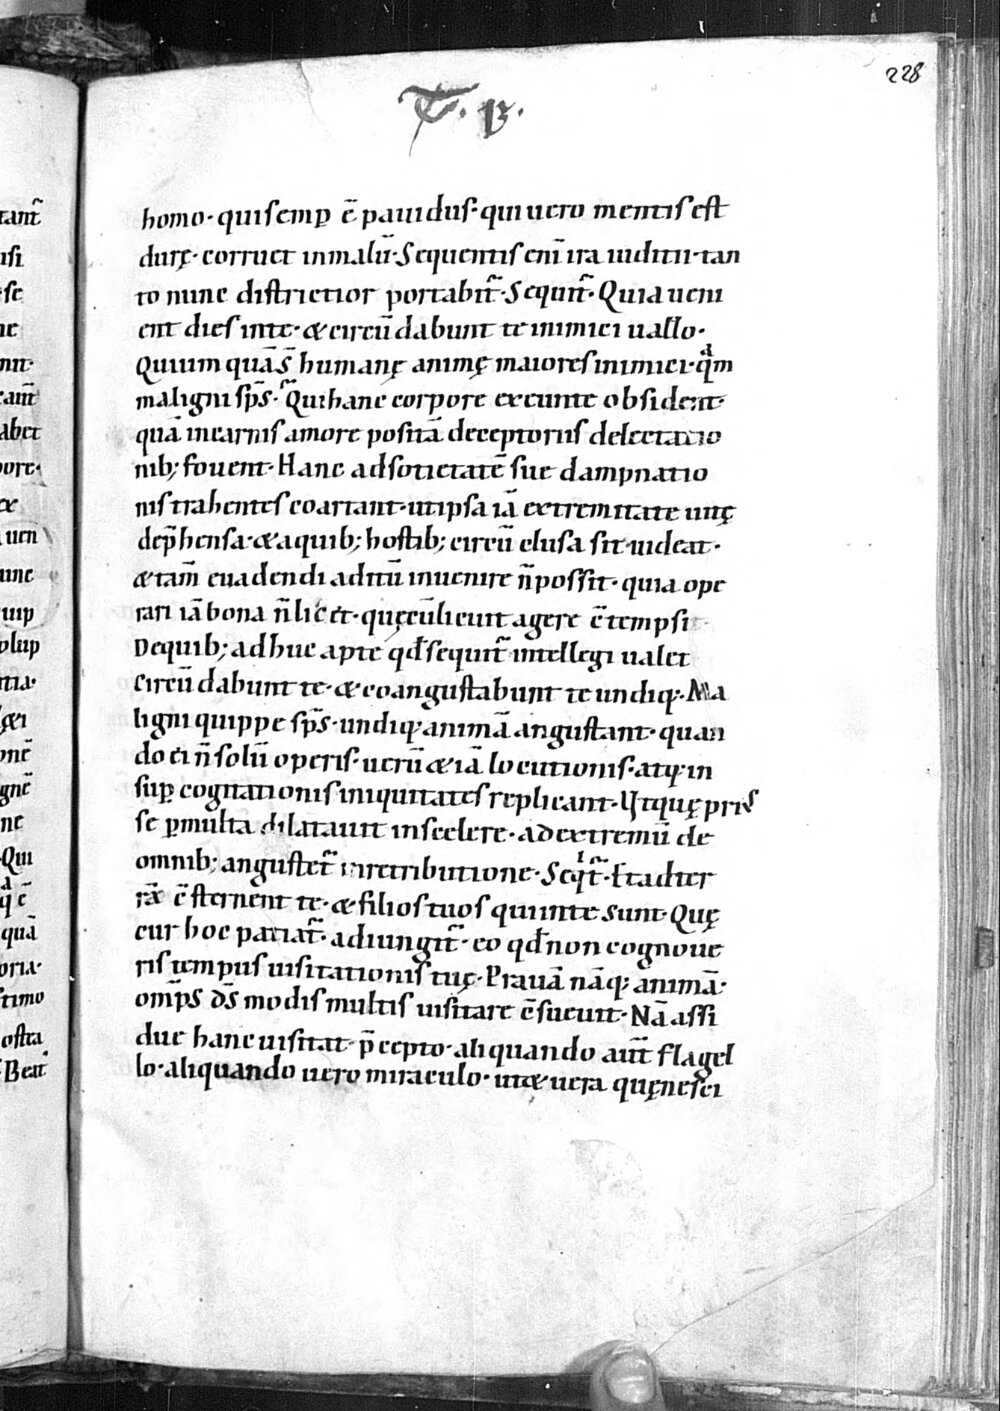 228
T. V.
homo· qui semꝑ ē pauidus· qui uero mentis est
durę· corruet in malū· Sequentis enī ira iuditii· tan
to nunc districtior portabit᷑· Sequit᷑· Quia ueni
ent dies in te· & circū dabunt te inimici uallo·
Qui umquā s᷑ humanę animę maiores inimici· qͣm
maligni sp̄s· Qui hanc corpore exeunte obsident·
quā in carnis amore positā deceptoriis delectatio
nib; fouent· Hanc ad sotietatē sue dampnatio
nis trahentes coartant· ut ipsa iā extremitate uitę
dep̄hensa· & a quib; hostib; circū clusa sit uideat·
& tam̄ euadendi aditū inuenire n̄ possit· quia ope
rari iā bona n̄ licet· quę cū licuit agere cōtempsit·
De quib; adhuc apte qđ sequit᷑ intellegi ualet
Circū dabunt te· & coangustabunt te undiqꝫ· Ma
ligni quippe sp̄s· undiqꝫ animā angustant· quan
do ei n̄ solū operis· uerū & iā locutionis· atqꝫ in
suꝑ cogitationis iniquitates replicant· Ut quę priꝰ
se ꝑ multa dilatauit in scelere· ad extremū de
omnib; angustet᷑ in retributione· Seqͥt᷑· Et ad ter
rā cōsternent te· & filios tuos qui in te sunt· Quę
cur hoc patiat᷑· adiungit᷑· eo qđ non cognoue
ris tempus uisitationis tuę· Prauā nāqꝫ animā·
omp̄s ds̄ modis multis uisitare cōsueuit· Nā assi
due hanc uisitat p̄cepto· aliquando aut̄ flagel
lo· aliquando uero miraculo· ut & uera quę nesci